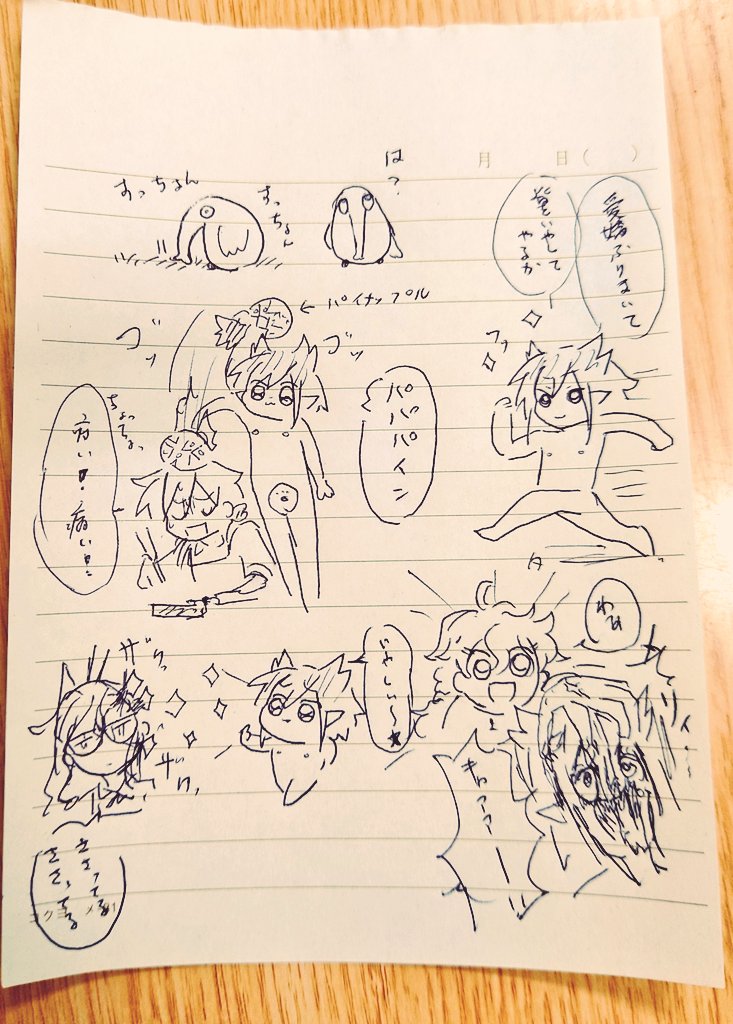 月　日（　）
愛嬌ふりまいて
やるか
フッ
は？
すっちょん
すっちょん
パイナップル
ゴッ
ゴッ
パパパイン
ちょっちょっ
痛い！！痛い！！
わぁ
いやしい〜★
きゃーァァー!!
ザクッ
ザクッ
ささってる
ささってる